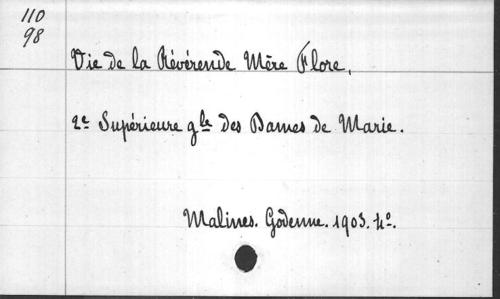 110
98
Vie de la Révérende Mère Flore,
2e Supérieure gle des Dames de Marie.
Malines. Godenne. 1903. 4o.